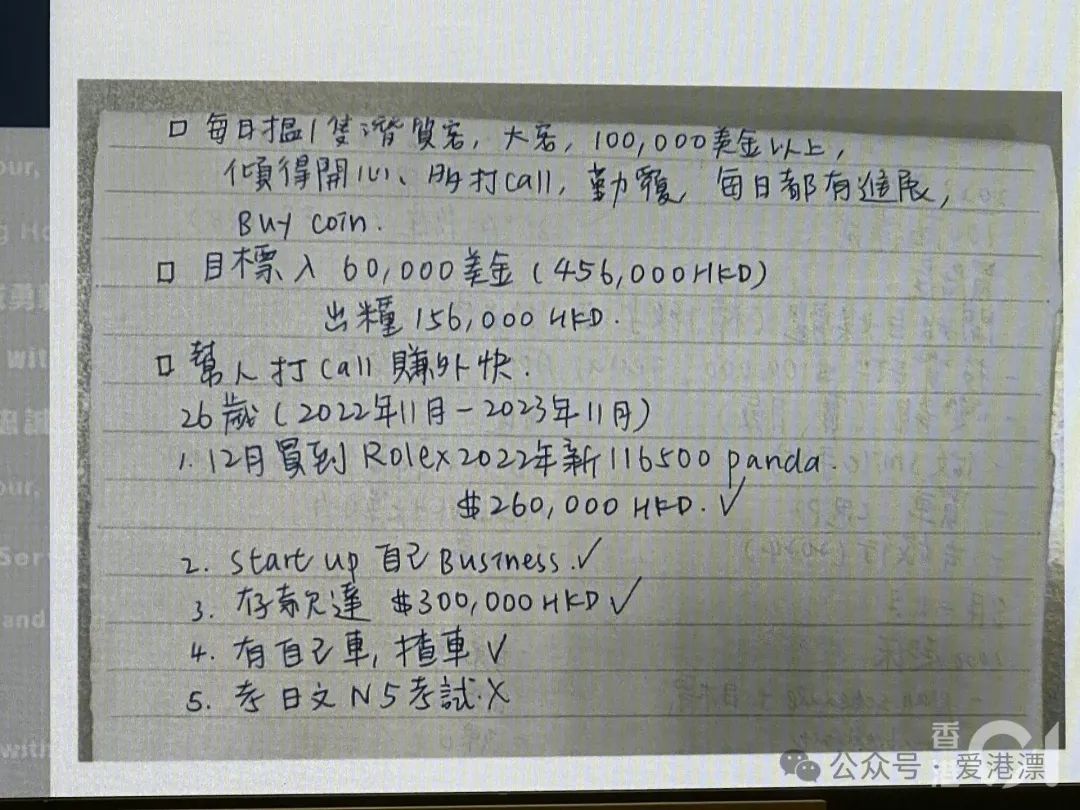 □ 每日搵1隻濳質客，大客，100,000美金以上，
傾得開心、多打call，勤覆，每日都有進展，
Buy coin.
□ 目標入 60,000美金 (456,000HKD)
出糧 156,000 HKD.
□ 幫人打call 賺外快.
26歲 (2022年11月-2023年11月)
1. 12月買到 Rolex 2022年新 116500 panda.
$260,000 HKD. ✓
2. start up 自己 Business. ✓
3. 存款達 $300,000 HKD ✓
4. 有自己車, 揸車 ✓
5. 考日文 N5考試. X
our,
g Ho
with
our,
Serv
and
with
公众号 · 爱港漂
香港01